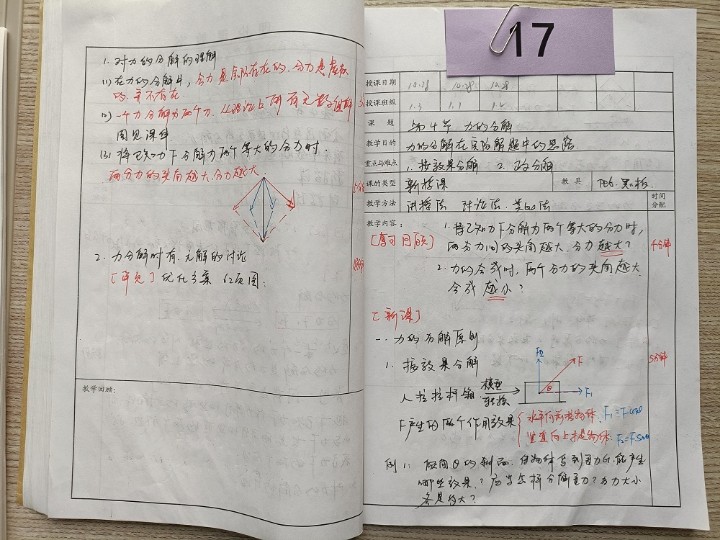 1. 对力的分解的理解
(1) 在力的分解中，合力是实际存在的，分力是虚拟的，并不存在
(2) 一个力分解为两个力，从理论上讲有无数组解
图见课件
(3) 将已知力F分解为两个等大的分力时，
两分力的夹角越大，分力越大
2. 力分解时有、无解的讨论
教学回顾：
17
授课日期
授课班级
课 题 第4节 力的分解
教学目的 力的分解在实际解题中的思路
重点与难点 1. 按效果分解 2. 正交分解
课的类型 新授课 教 具
教学方法 讲授法 讨论法
时间分配
教学内容：
[复习回顾]
1. 将已知力F分解为两个等大的分力时，
两分力间的夹角越大，分力越大？
2. 力的合成时，两个分力的夹角越大
合成越小？
[新课]
一. 力的分解原则
1. 按效果分解 5分钟
人拉拉杆箱 模型 转换 F₂ F θ F₁
F产生的两个作用效果
水平向前拉物体 F₁=Fcosθ
竖直向上提物体 F₂=Fsinθ
例1：
哪些效果？应当怎样分解重力？分力大小
各是多大？